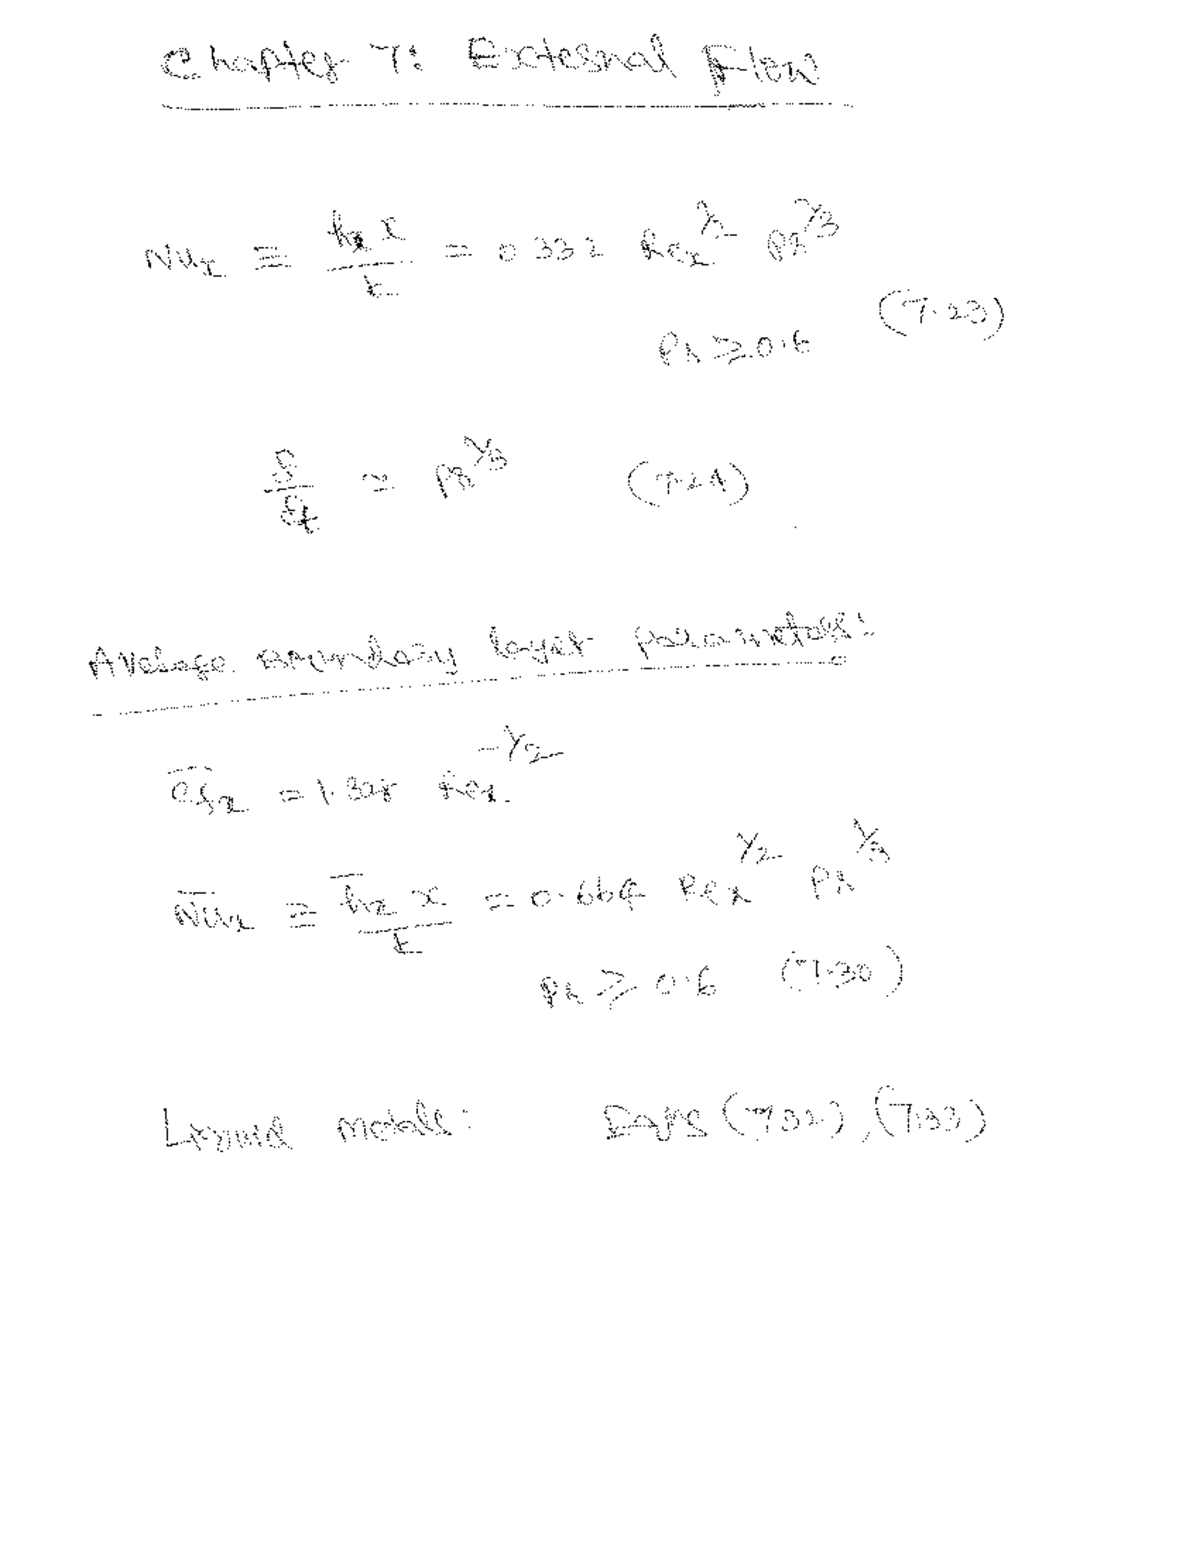 Chapter 7: External Flow
Nu_x ≡ h_x x / k = 0.332 Re_x^1/2 Pr^1/3
(7.23)
Pr ≥ 0.6
δ / δ_t ≃ Pr^1/3 (7.24)
Average boundary layer parameters:
C̅_f,x = 1.328 Re_x^-1/2
N̅u̅_x ≡ h̅_x x / k = 0.664 Re_x^1/2 Pr^1/3
Pr ≥ 0.6 (7.30)
Liquid metals: Eqns (7.32), (7.33)